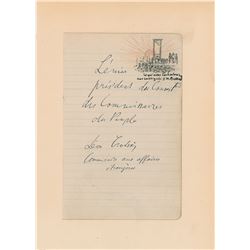 Lénine
président du Conseil
des Commissaires
du Peuple
Léon Trotski
Commissaire aux affaires
étrangères